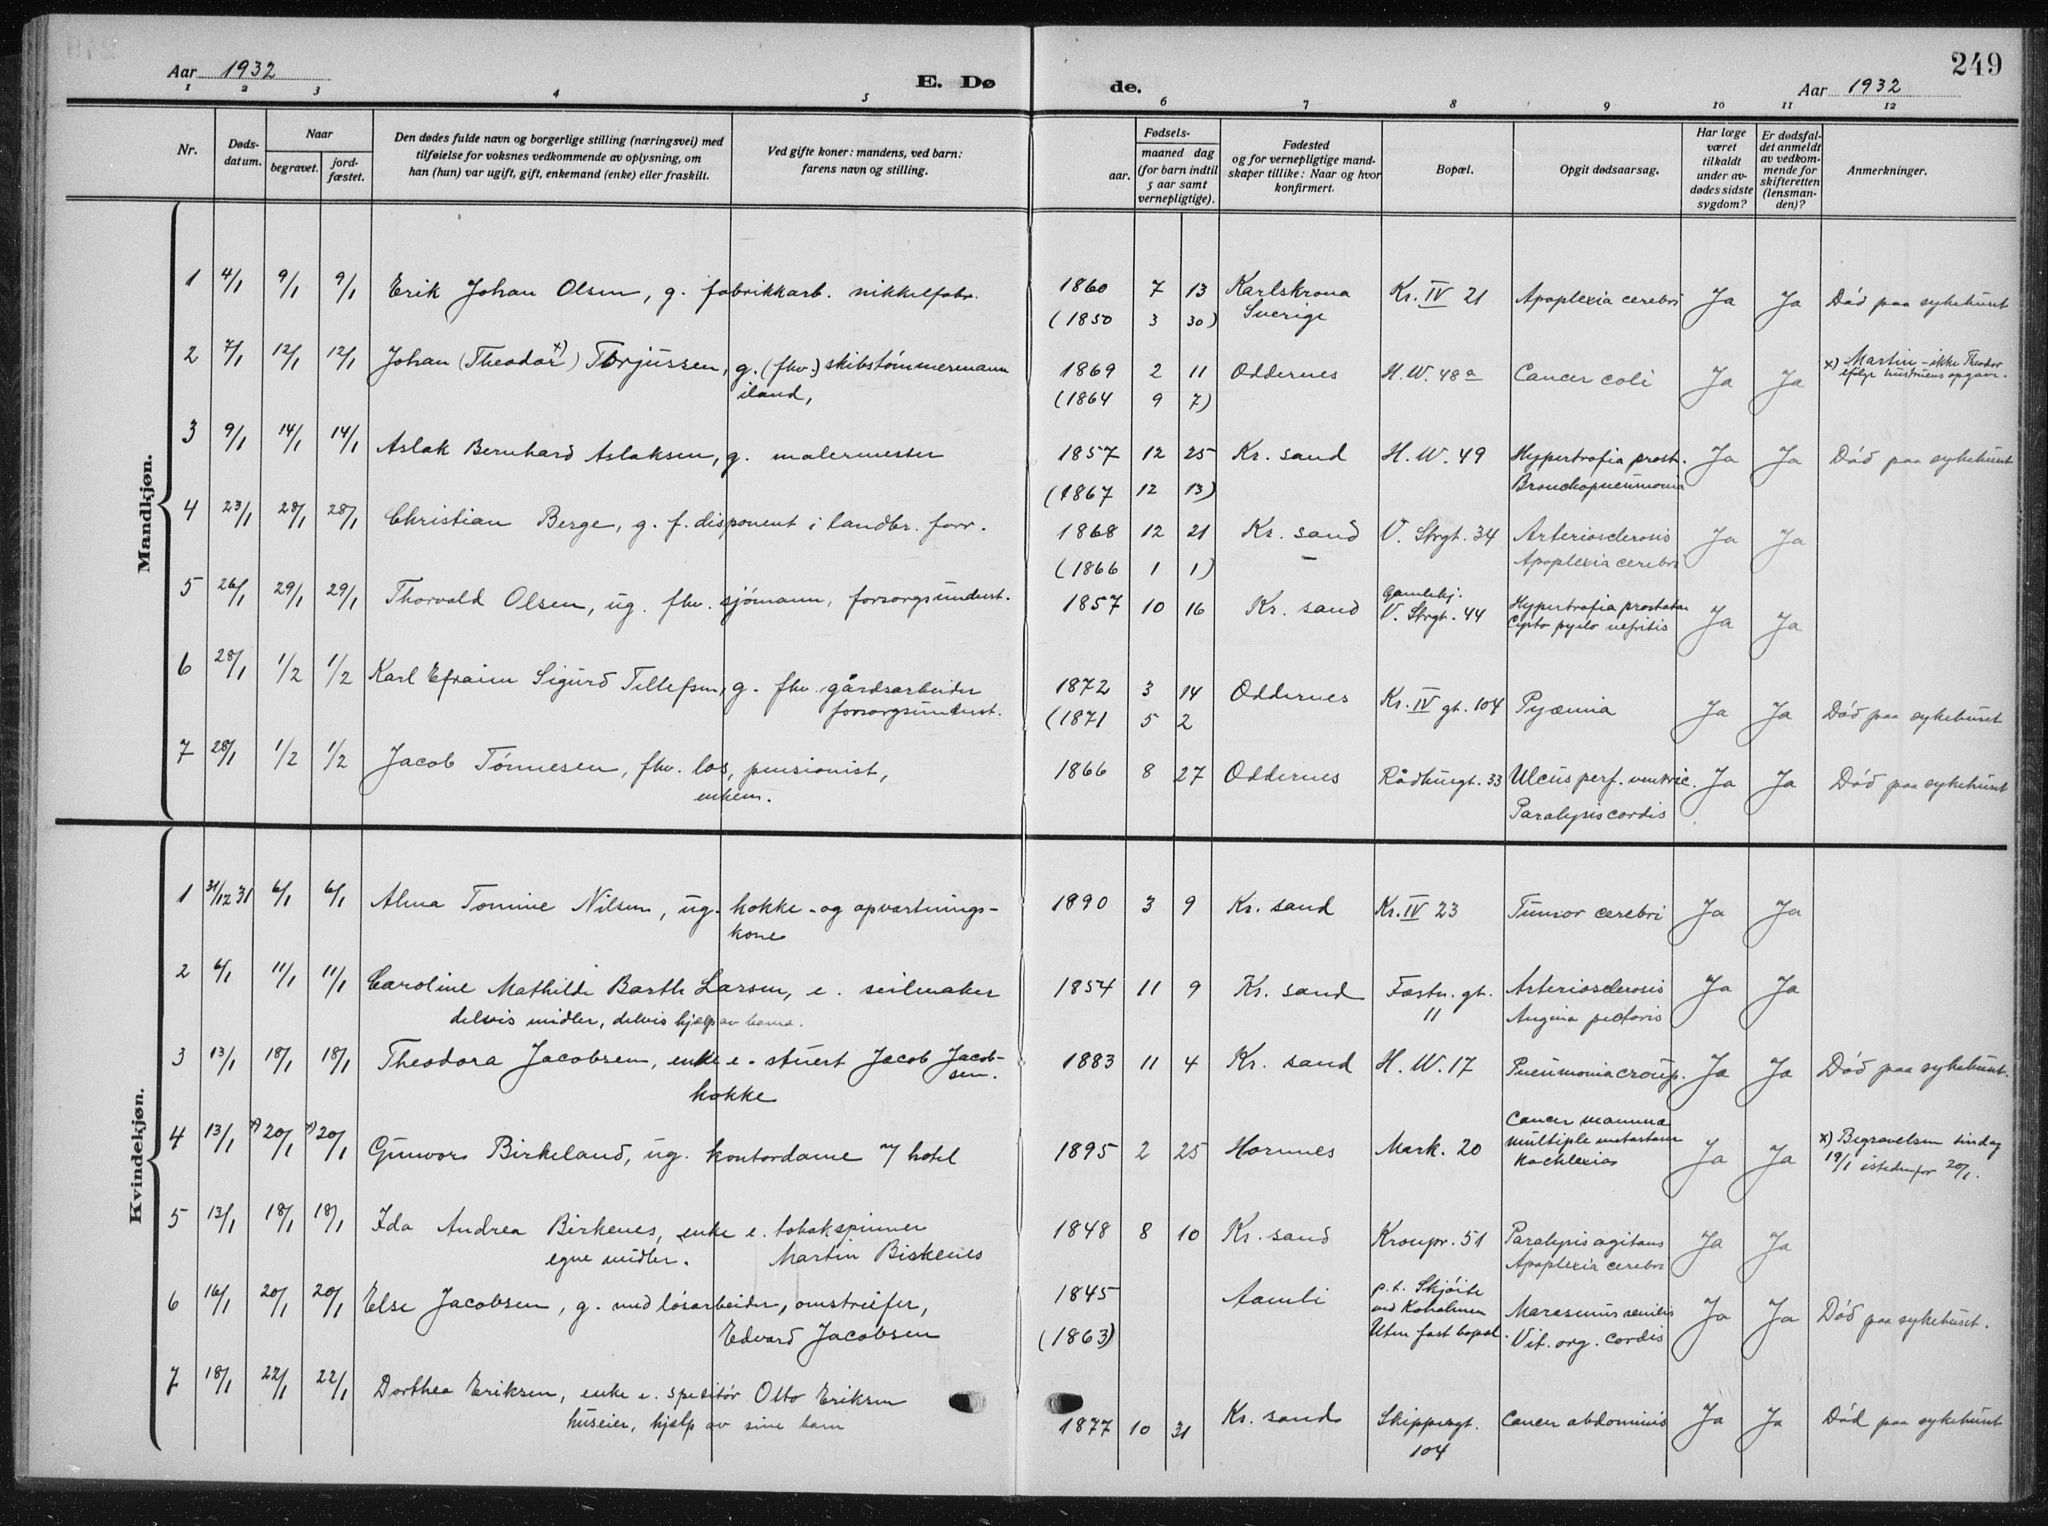 249
Aar 1932
E. Døde.
Aar 1932
1 2 3 4 5 6 7 8 9 10 11 12
Nr.
Døds-
datum.
Naar
begravet.
jord-
fæstet.
Den dødes fulde navn og borgerlige stilling (næringsvei) med
tilføielse for voksnes vedkommende av oplysning, om
han (hun) var ugift, gift, enkemand (enke) eller fraskilt.
Ved gifte koner: mandens, ved barn:
farens navn og stilling.
Fødsels-
aar.
maaned dag
(for barn indtil
5 aar samt
vernepligtige).
Fødested
og for vernepligtige mand-
skaper tillike: Naar og hvor
konfirmert.
Bopæl.
Opgit dødsaarsag.
Har læge
været
tilkaldt
under av-
dødes sidste
sygdom?
Er dødsfal-
det anmeldt
av vedkom-
mende for
skifteretten
(lensman-
den)?
Anmerkninger.
Mandkjøn.
1 4/1 9/1 9/1 Erik Johan Olsen, g. fabrikkarb. nikkelfabr. 1860 7 13 Karlskrona Kr. IV 21 Apoplexia cerebri Ja Ja Död paa sykehuset
(1850 3 30) Sverige
2 7/1 12/1 12/1 Johan (Theodor x)) Torjussen, g. (fhv.) skibstømmermann 1869 2 11 Oddernes H.W. 48a Cancer coli Ja Ja x) Martin - ikke Theodor
iland, (1864 9 7) ifölge hustruens opgave.
3 9/1 14/1 14/1 Aslak Bernhard Aslaksen, g. malermester 1857 12 25 Kr. sand H.W. 49 Hypertrofia prost. Ja Ja Död paa sykehuset
(1867 12 13) Bronchopneumonia
4 23/1 28/1 28/1 Christian Berge, g. f. disponent i landbr. forr. 1868 12 21 Kr. sand V. Strgt. 34 Arteriosclerosis Ja Ja
(1866 1 1) - Apoplexia cerebri
5 26/1 29/1 29/1 Thorvald Olsen, ug. fhv. sjömann, forsorgsunderst. 1857 10 16 Kr. sand Gamlehj. V. Strgt. 44 Hypertrofia prostatae Ja Ja
Cysto pyelo nefritis
6 28/1 1/2 1/2 Karl Efraim Sigurd Tellefsen, g. fhv. gårdsarbeider 1872 3 14 Oddernes Kr. IV gt. 104 Pyæmia Ja Ja Död paa sykehuset
forsorgsunderst. (1871 5 2
7 28/1 1/2 1/2 Jacob Tönnesen, fhv. los, pensionist, 1866 8 27 Oddernes Rådhusgt. 33 Ulcus perf. ventric. Ja Ja Död paa sykehuset
enkem. Paralysis cordis
Kvindekjøn.
1 31/12 31 6/1 6/1 Alma Tomine Nilsen, ug. kokke- og opvartnings- 1890 3 9 Kr. sand Kr. IV 23 Tumor cerebri Ja Ja
kone
2 6/1 11/1 11/1 Caroline Mathilde Barth Larsen, e. seilmaker 1854 11 9 Kr. sand Fæstn. gt. Arteriosclerosis Ja Ja
delvis midler, delvis hjælp av barna. 11 Angina pectoris
3 13/1 18/1 18/1 Theodora Jacobsen, enke e. stuert Jacob Jacob- 1883 11 4 Kr. sand H.W. 17 Pneumonia croup. Ja Ja Död paa sykehuset.
sen.
kokke
4 13/1 x) 20/1 x) 20/1 Gunvor Birkeland, ug. kontordame v/ hotel 1895 2 25 Hornnes Mark. 20 Cancer mammae Ja Ja x) Begravelsen tirsdag
multiple metastaser 19/1 istedenfor 20/1.
Kachlexia
5 13/1 18/1 18/1 Ida Andrea Birkenes, enke e. tobakspinner 1848 8 10 Kr. sand Kronpr. 51 Paralysis agitans Ja Ja
egne midler. Martin Birkenes Apoplexia cerebri
6 16/1 20/1 20/1 Else Jacobsen, g. med lösarbeider, omstreifer, 1845 Aamli p.t. Skjöite Marasmus senilis Ja Ja Död paa sykehuset.
Edvard Jacobsen (1863) ved Koholmen Vit. org. cordis
Uten fast bopæl.
7 18/1 22/1 22/1 Dorthea Eriksen, enke e. speditör Otto Eriksen 1877 10 31 Kr. sand Skippergt. Cancer abdominis Ja Ja Död paa sykehuset
huseier, hjælp av sine barn 104